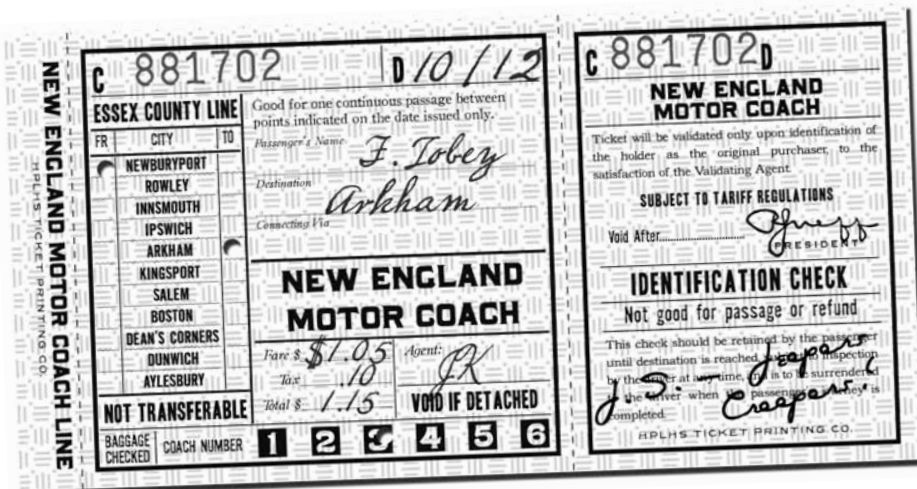 NEW ENGLAND MOTOR COACH LINE
HPLHS TICKET PRINTING CO.
C 881702 D 10/12
ESSEX COUNTY LINE
FR CITY TO
NEWBURYPORT
ROWLEY
INNSMOUTH
IPSWICH
ARKHAM
KINGSPORT
SALEM
BOSTON
DEAN'S CORNERS
DUNWICH
AYLESBURY
NOT TRANSFERABLE
Good for one continuous passage between
points indicated on the date issued only.
Passenger's Name F. Tobey
Destination Arkham
Connecting Via
NEW ENGLAND
MOTOR COACH
Fare $ $1.05
Tax .10
Total $ 1.15
Agent: JK
VOID IF DETACHED
BAGGAGE
CHECKED
COACH NUMBER 1 2 3 4 5 6
C 881702 D
NEW ENGLAND
MOTOR COACH
Ticket will be validated only upon identification of
the holder as the original purchaser, to the
satisfaction of the Validating Agent.
SUBJECT TO TARIFF REGULATIONS
Void After
PRESIDENT
IDENTIFICATION CHECK
Not good for passage or refund
This check should be retained by the passenger
until destination is reached, inspection
by the driver at any time, and is to be surrendered
the driver when passenger's journey is
completed.
Jeepers
Creepers
HPLHS TICKET PRINTING CO.